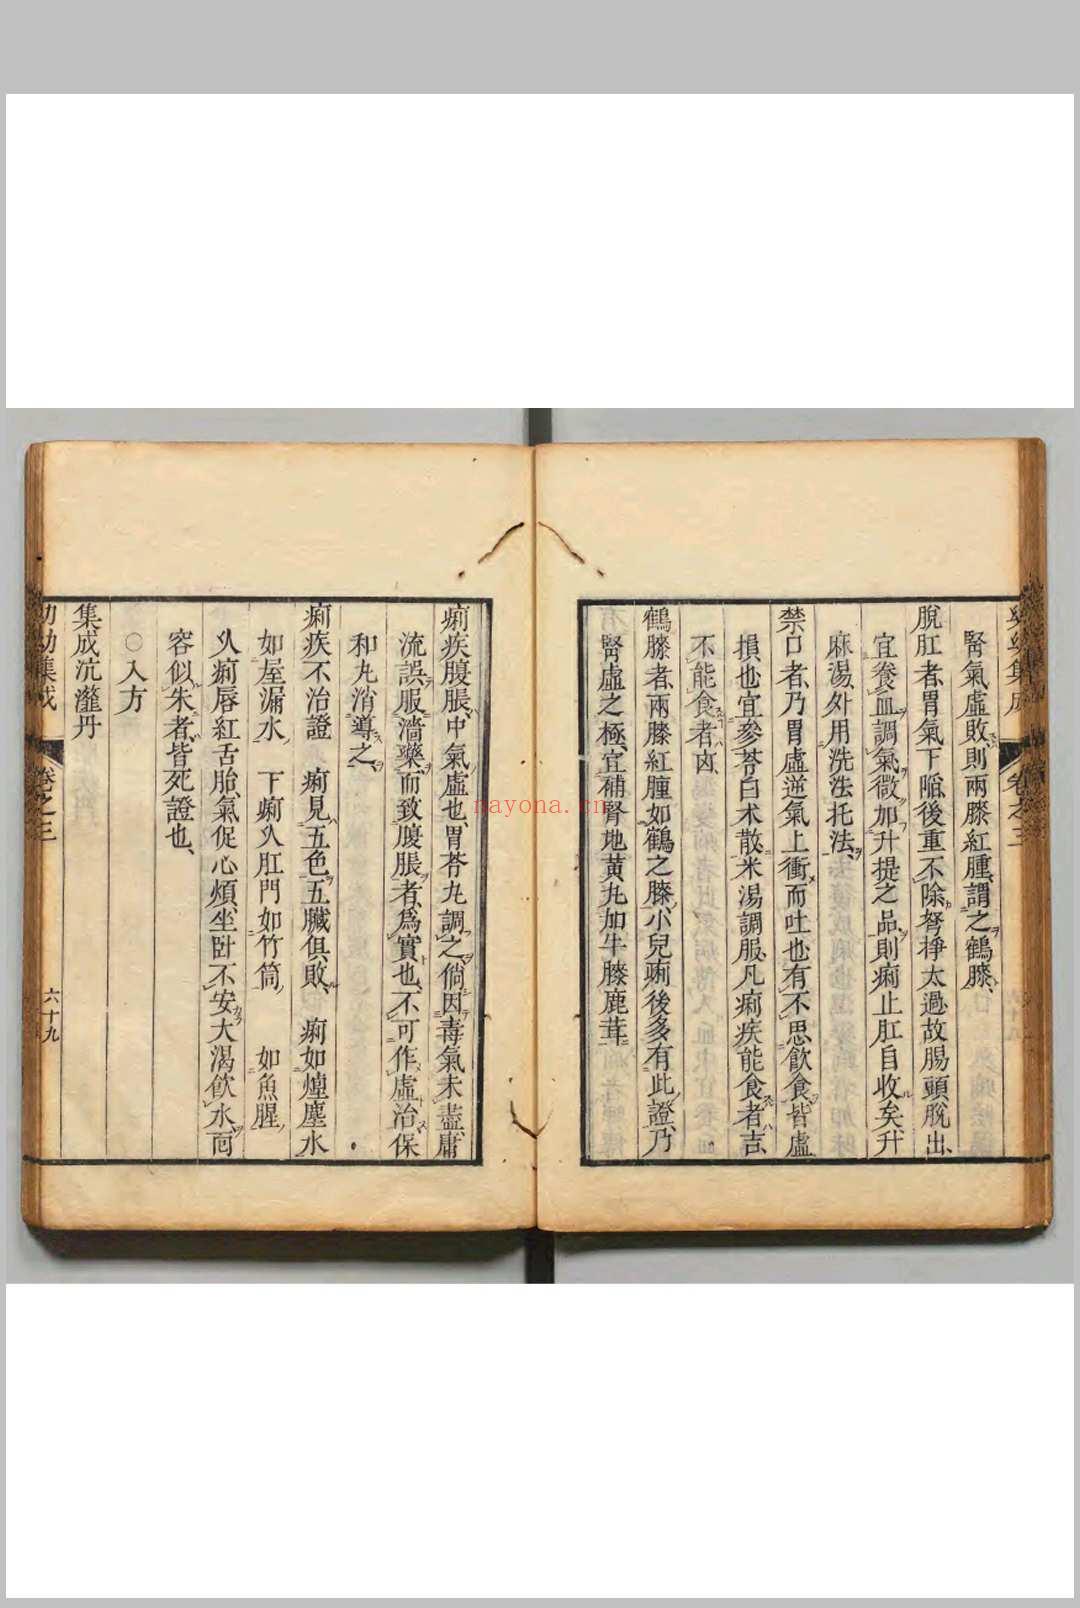 幼幼集成 卷之三
腎氣虛敗、則兩膝紅腫、謂之鶴膝、
脫肛者、胃氣下陷、後重不除、努掙太過、故腸頭脫出、
宜養血調氣、微加升提之品、則痢止肛自收矣、升
麻湯、外用洗法托法、
禁口者、乃胃虛逆氣上衝而吐也、有不思飲食、皆虛
損也、宜參苓白术散、米湯調服、凡痢疾能食者吉、
不能食者凶、
鶴膝者、兩膝紅腫如鶴之膝、小兒痢後多有此證、乃
腎虛之極、宜補腎地黄丸加牛膝鹿茸、
痢疾腹脹、中氣虛也、胃苓丸調之、倘因毒氣未盡、庸
流誤服濇藥、而致腹脹者、爲實也、不可作虛治、保
和丸消導之、
痢疾不治證 痢見五色、五臟俱敗、 痢如煙塵水
如屋漏水 下痢久肛門如竹筒 如魚腥
久痢唇紅舌胎、氣促心煩、坐卧不安、大渴飲水、面
容似朱者、皆死證也、
○入方
集成沆瀣丹
幼幼集成 卷之三 六十九
nayona.cn